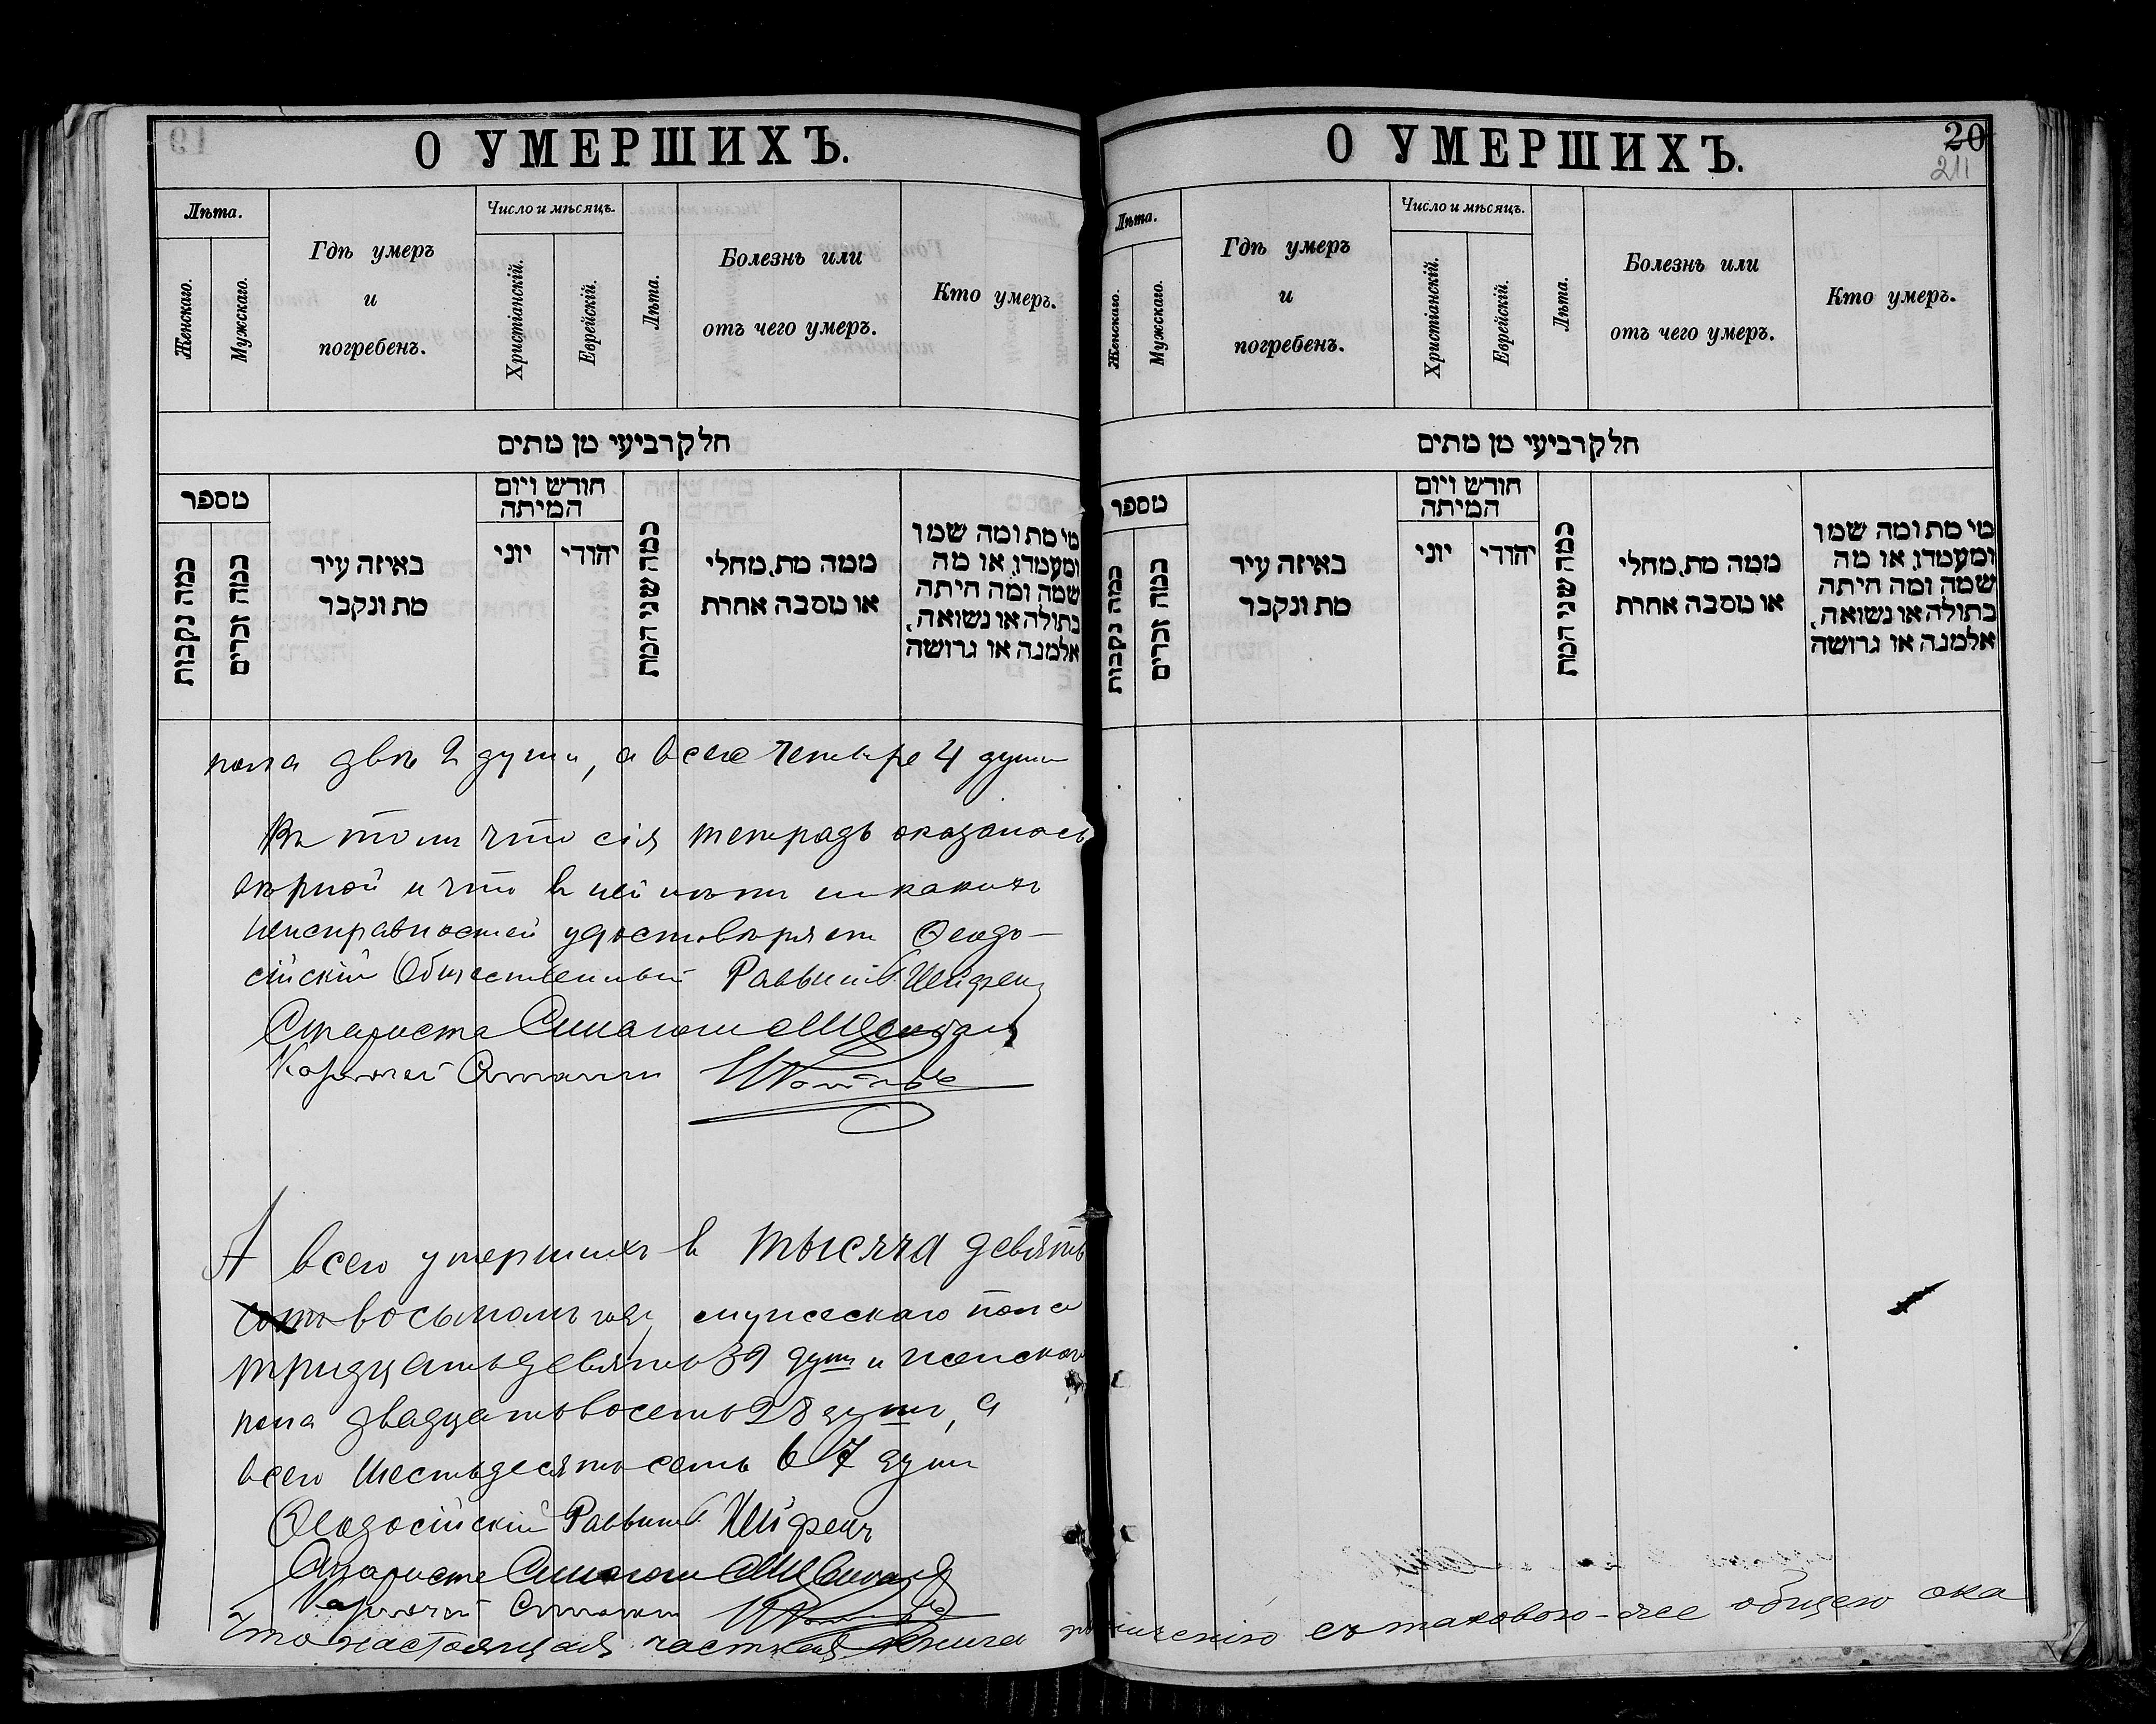 О УМЕРШИХЪ.
Лѣта.
Женскаго.
Мужскаго.
Гдѣ умеръ
и
погребенъ.
Число и мѣсяцъ.
Христіанскій.
Еврейскій.
Лѣта.
Болезнь или
отъ чего умеръ.
Кто умеръ.
חלק רביעי מן מתים
מספר
כמה נקבות
כמה זכרים
באיזה עיר
מת ונקבר
חודש ויום
המיתה
יוני
יהודי
כמה שני המת
ממה מת, מחלי
או מסבה אחרת
מי מת ומה שמו
ומעמדו, או מה
שמה ומה היתה
בתולה או נשואה,
אלמנה או גרושה
пола двѣ 2 души, а всего четыре 4 души
Въ томъ что сія тетрадь оказалась
вѣрной и что въ ней нѣтъ никакихъ
неисправностей удостовѣряетъ Ѳеодо-
сійскій Общественный Раввинъ
Староста Синагоги
Казначей Синагоги
А всего умершихъ въ тысяча девять
сотъ восьмомъ году мужескаго пола
тридцать девять 39 душъ и женскаго
пола двадцать восемь 28 душъ, а
всего шестьдесятъ семь 67 душъ
Ѳеодосійскій Раввинъ
Староста Синагоги
Казначей Синагоги
Что настоящая частная книга
О УМЕРШИХЪ.
20
211
Лѣта.
Женскаго.
Мужскаго.
Гдѣ умеръ
и
погребенъ.
Число и мѣсяцъ.
Христіанскій.
Еврейскій.
Лѣта.
Болезнь или
отъ чего умеръ.
Кто умеръ.
חלק רביעי מן מתים
מספר
כמה נקבות
כמה זכרים
באיזה עיר
מת ונקבר
חודש ויום
המיתה
יוני
יהודי
כמה שני המת
ממה מת, מחלי
או מסבה אחרת
מי מת ומה שמו
ומעמדו, או מה
שמה ומה היתה
בתולה או נשואה,
אלמנה או גרושה
съ таковою-же общею ока